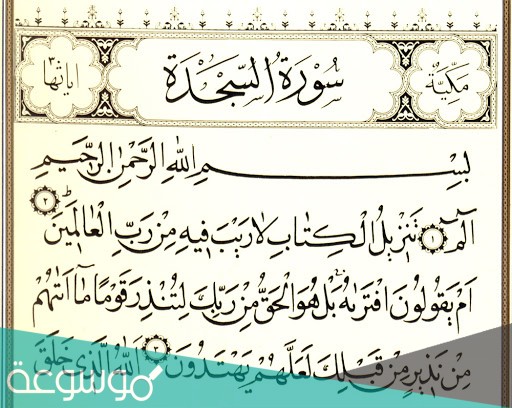 مكية سورة السجدة اياتها ٣٠
بسم الله الرحمن الرحيم
الٓمٓ ١ تَنْزِيلُ الْكِتَابِ لَا رَيْبَ فِيهِ مِنْ رَبِّ الْعَالَمِينَ ٢
اَمْ يَقُولُونَ افْتَرٰيهُ بَلْ هُوَ الْحَقُّ مِنْ رَبِّكَ لِتُنْذِرَ قَوْمًا مَٓا اَتٰيهُمْ
مِنْ نَذِيرٍ مِنْ قَبْلِكَ لَعَلَّهُمْ يَهْتَدُونَ اَللّٰهُ الَّذِي خَلَقَ
موسوعة